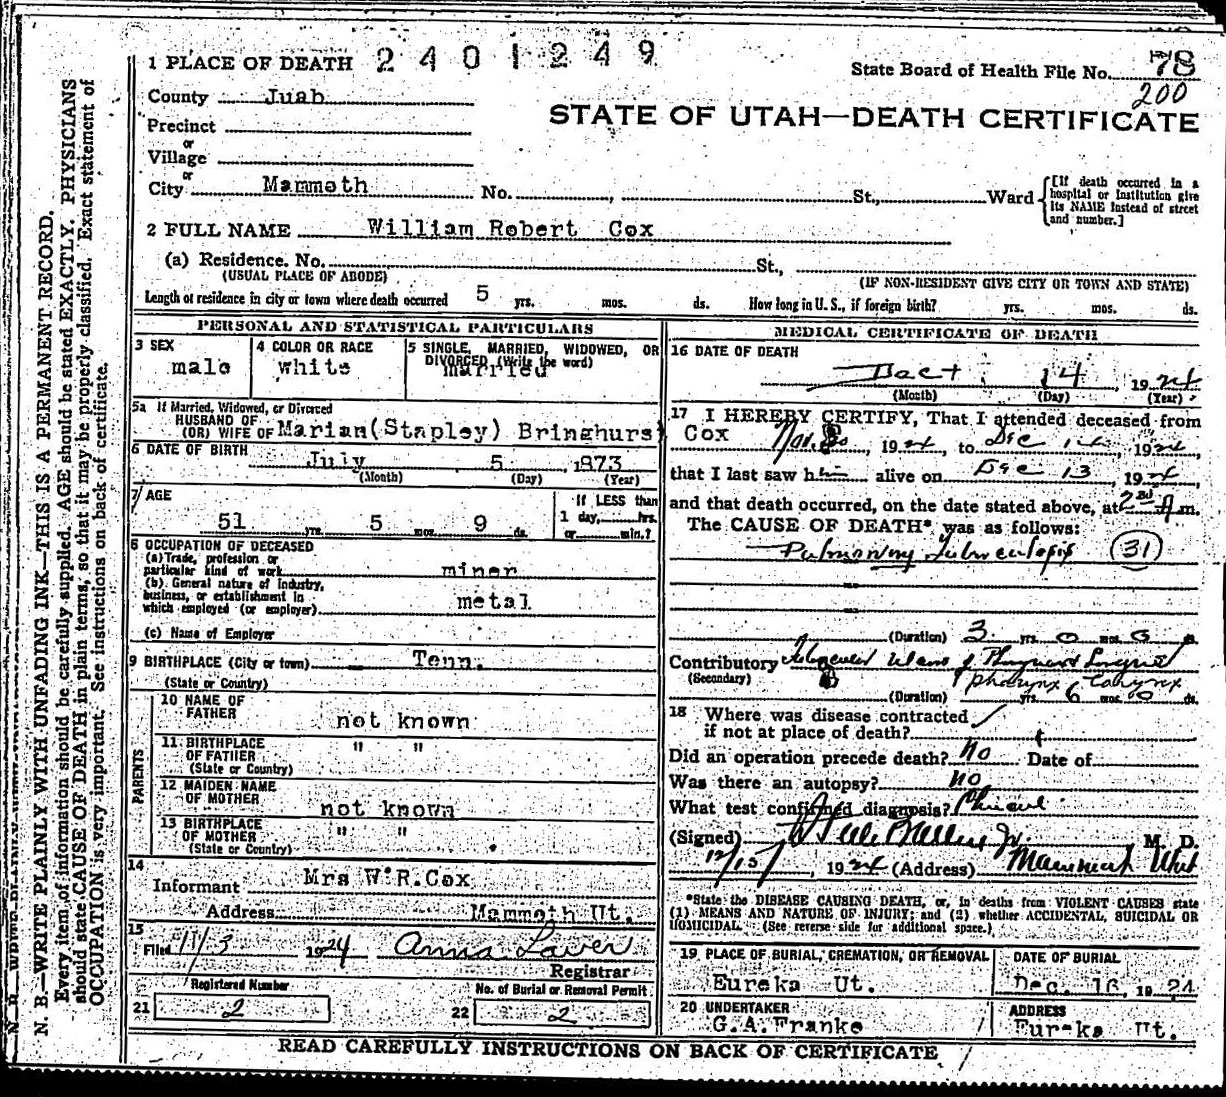 1 PLACE OF DEATH 2 4 0 1 2 4 9
State Board of Health File No. 78
200
County Juab
STATE OF UTAH—DEATH CERTIFICATE
Precinct
or
Village
or
City Mammoth No. , St., Ward
[If death occurred in a hospital or institution give its NAME instead of street and number.]
2 FULL NAME William Robert Cox
(a) Residence. No. St.,
(USUAL PLACE OF ABODE) (IF NON-RESIDENT GIVE CITY OR TOWN AND STATE)
Length of residence in city or town where death occurred 5 yrs. mos. ds. How long in U. S., if foreign birth? yrs. mos. ds.
PERSONAL AND STATISTICAL PARTICULARS
3 SEX
male
4 COLOR OR RACE
white
5 SINGLE, MARRIED, WIDOWED, OR
DIVORCED (Write the word)
married
5a If Married, Widowed, or Divorced
HUSBAND OF
(OR) WIFE OF Marian(Stapley) Bringhurst
6 DATE OF BIRTH
July 5 , 1873
(Month) (Day) (Year)
7 AGE
51 yrs. 5 mos. 9 ds.
If LESS than
1 day, hrs.
or min.?
8 OCCUPATION OF DECEASED
(a) Trade, profession or
particular kind of work miner
(b) General nature of industry,
business, or establishment in
which employed (or employer) metal
(c) Name of Employer
9 BIRTHPLACE (City or town) Tenn.
(State or Country)
PARENTS
10 NAME OF
FATHER not known
11 BIRTHPLACE
OF FATHER " "
(State or Country)
12 MAIDEN NAME
OF MOTHER not known
13 BIRTHPLACE
OF MOTHER " "
(State or Country)
14
Informant Mrs W.R.Cox
Address Mammoth Ut.
15
Filed 1924 Anna Laver
Registrar
Registered Number
21 2
No. of Burial or Removal Permit
22 2
MEDICAL CERTIFICATE OF DEATH
16 DATE OF DEATH
14 1924
(Month) (Day) (Year)
17 I HEREBY CERTIFY, That I attended deceased from
Cox Nov. , 1924 to Dec 14 , 1924
that I last saw him alive on Dec 13 , 1924,
and that death occurred, on the date stated above, at A m.
The CAUSE OF DEATH* was as follows:
Pulmonary Tuberculosis (31)
(Duration) 3 yrs. 0 mos. 0 ds.
Contributory Pharynx Larynx
(Secondary) pharynx Larynx
(Duration) yrs. 6 mos. 0 ds.
18 Where was disease contracted
if not at place of death?
Did an operation precede death? No Date of
Was there an autopsy? No
What test confirmed diagnosis? Clinical
(Signed) Jr. M. D.
12/15 , 1924 (Address) Mammoth Utah
*State the DISEASE CAUSING DEATH, or, in deaths from VIOLENT CAUSES state
(1) MEANS AND NATURE OF INJURY; and (2) whether ACCIDENTAL, SUICIDAL OR
HOMICIDAL. (See reverse side for additional space.)
19 PLACE OF BURIAL, CREMATION, OR REMOVAL
Eureka Ut.
DATE OF BURIAL
Dec. 16, 1924
20 UNDERTAKER
G.A.Franke
ADDRESS
Eureka Ut.
READ CAREFULLY INSTRUCTIONS ON BACK OF CERTIFICATE
N. B.—WRITE PLAINLY WITH UNFADING INK—THIS IS A PERMANENT RECORD.
Every item of information should be carefully supplied. AGE should be stated EXACTLY. PHYSICIANS
should state CAUSE OF DEATH in plain terms, so that it may be properly classified. Exact statement of
OCCUPATION is very important. See instructions on back of certificate.